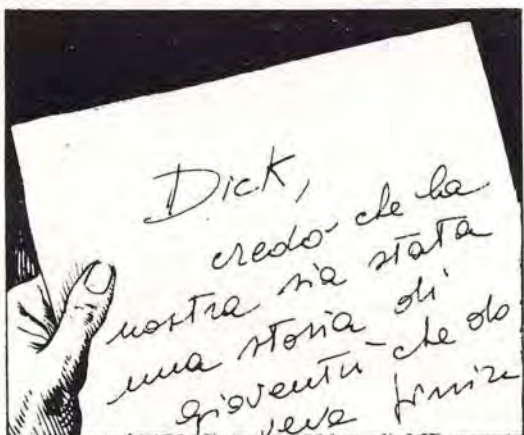 Dick,
credo che la
nostra sia stata
una storia di
gioventù che do
veva finire